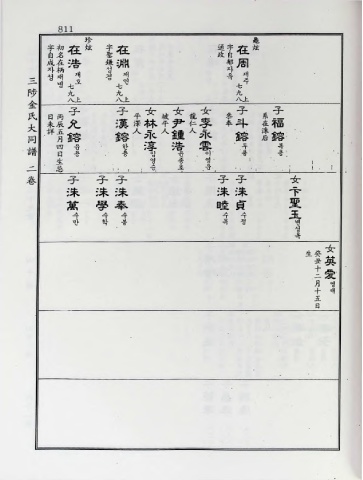 811
三陟金氏大同譜 二卷
龜炫
在周 재주
字自郁자욱
通政
七九八上
在淵 재연
字聖鎌성겸
七九八上
珍炫
在浩 재호
初名在炳재병
字自成자성
七九八上
子福鎔 복용
系在洙后
子斗鎔 두용
參奉
女李永雲 이영운
龍仁人
女尹鍾浩 윤종호
坡平人
女林永淳 임영순
平澤人
子漢鎔 한용
子允鎔 윤용
丙辰五月四日生忌
日未詳
女卞聖玉 변성옥
子洙貞 수정
子洙睦 수목
子洙奉 수봉
子洙學 수학
子洙萬 수만
女英愛 영애
癸丑十二月十五日
生